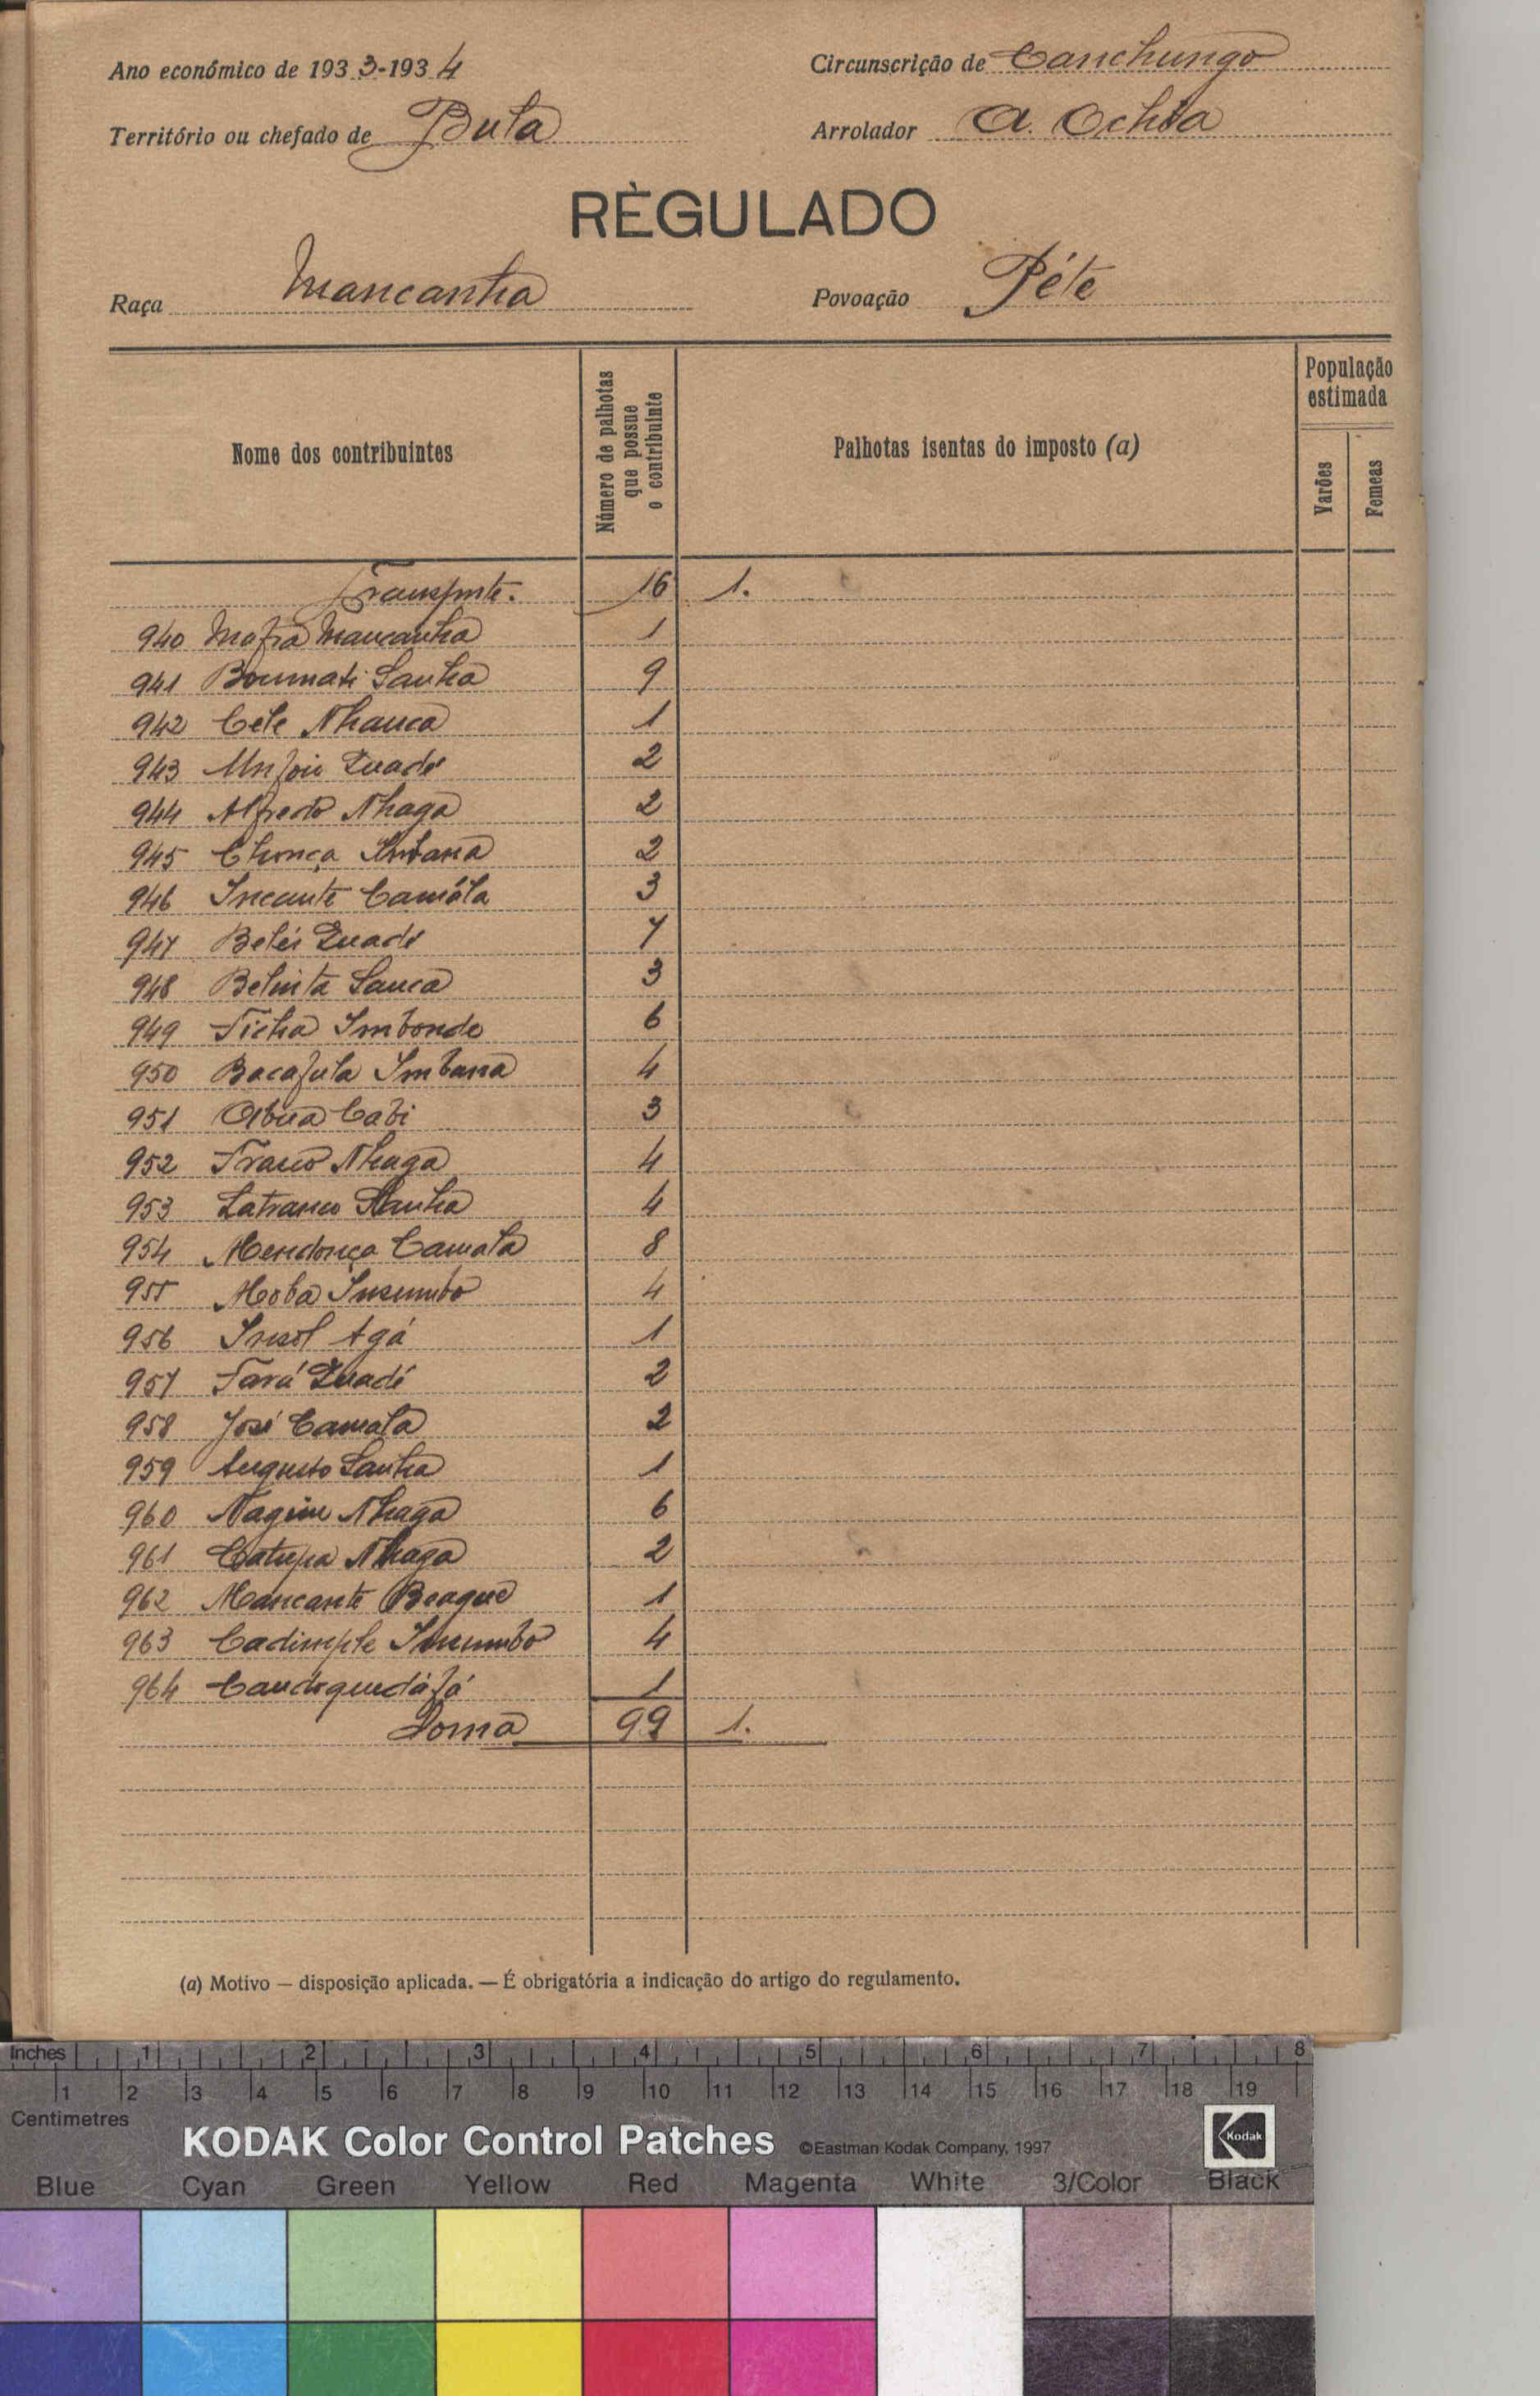 Ano económico de 1933-1934
Circunscrição de Canchungo
Território ou chefado de Bula
Arrolador A. Ochôa
RÈGULADO
Raça Mancanha
Povoação Péte
Nome dos contribuintes
Número de palhotas que possue o contribuinte
Palhotas isentas do imposto (a)
População estimada
Varões
Femeas
Transporte. 16 1.
940 Mafra Mancanha 1
941 Boumati Sanha 9
942 Cele Nhanca 1
943 Quadé 2
944 Alfredo Nhaga 2
945 Chonca Imbana 2
946 Incante Camála 3
947 Quadé 7
948 Belinta Sanca 3
949 Ticha Imbonde 6
950 Bacafula Imbana 4
951 Abua Cabi 3
952 Franco Nhaga 4
953 Latranco Sanha 4
954 Mendonça Camala 8
955 Moba Insumbo 4
956 Insol Agá 1
957 Fará Quadé 2
958 José Camala 2
959 Augusto Sanha 1
960 Nagim Nhaga 6
961 Catupa Nhaga 2
962 Mancante Beague 1
963 Cadimple Insumbo 4
964 1
Soma 99 1.
(a) Motivo — disposição aplicada. — É obrigatória a indicação do artigo do regulamento.
Inches 1 2 3 4 5 6 7 8
1 2 3 4 5 6 7 8 9 10 11 12 13 14 15 16 17 18 19
Centimetres
KODAK Color Control Patches ©Eastman Kodak Company, 1997 Kodak
Blue Cyan Green Yellow Red Magenta White 3/Color Black